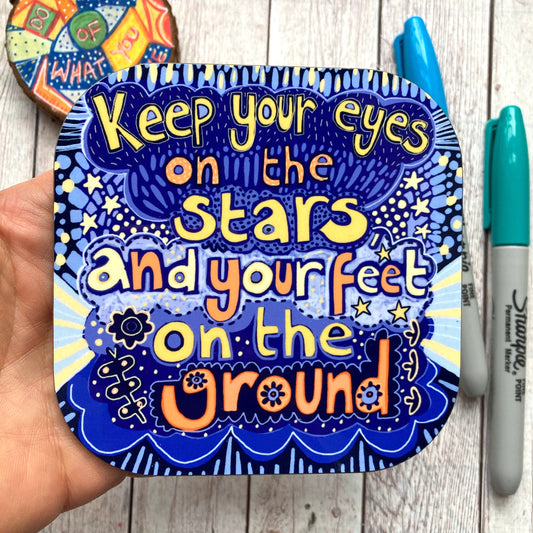 DO
OF
WHAT YOU
Keep your eyes
on the
stars
and your feet
on the
ground
Sharpie
Permanent Marker
POINT
POINT